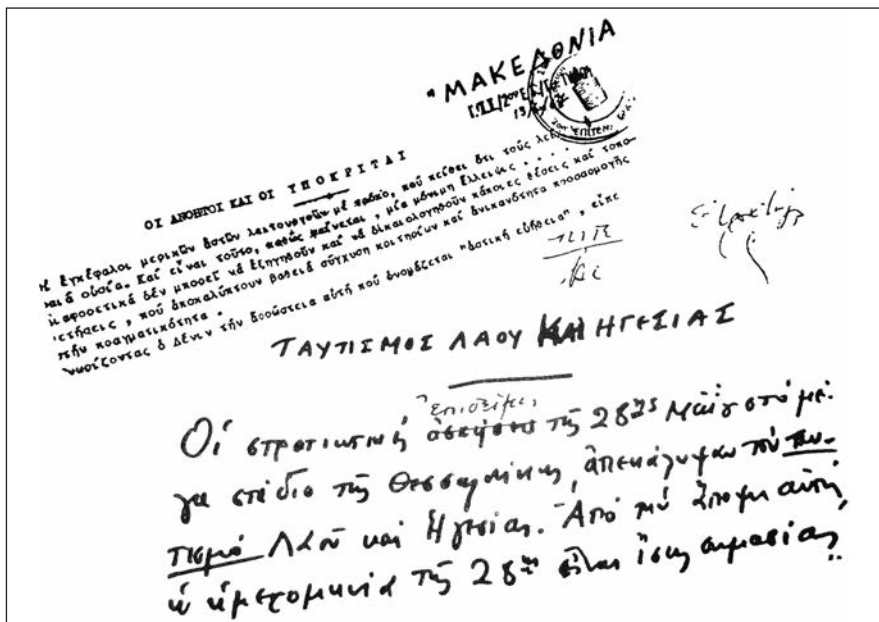 "ΜΑΚΕΔΟΝΙΑ
ΟΙ ΑΝΟΗΤΟΙ ΚΑΙ ΟΙ ΥΠΟΚΡΙΤΑΙ
ἐγκέφαλοι μερικῶν ἀστῶν λειτουργοῦν μέ τρόπο, πού πείθει ὅτι τούς
οὐσία. Καί εἶναι τοῦτο, καθώς φαίνεται, μία μόνιμη ἔλλειψις ....
δέν μπορεῖ νά ἐξηγηθοῦν καί νά δικαιολογηθοῦν κάποιες θέσεις καί
πού ἀποκαλύπτουν βαθειά σύγχυση κριτηρίων καί ἀνικανότητα προσαρμογῆς
στήν πραγματικότητα.
ὁ Λένιν τήν ἀρρώστεια αὐτή πού ὀνομάζεται "ἀστική εὐήθεια", εἶπε
ΤΑΥΤΙΣΜΟΣ ΛΑΟΥ ΚΑΙ ΗΓΕΣΙΑΣ
ἐπιδείξεις
Οἱ στρατιωτικές τῆς 28ης Μαΐου στό μέ-
γα στάδιο τῆς Θεσσαλονίκης, ἀπεκάλυψαν τόν ταυ-
τισμό Λαοῦ καί Ἡγεσίας. Ἀπό τήν ἄποψη αὐτή,
ἡ ἡμερομηνία τῆς 28ης εἶναι ἴσης σημασίας..